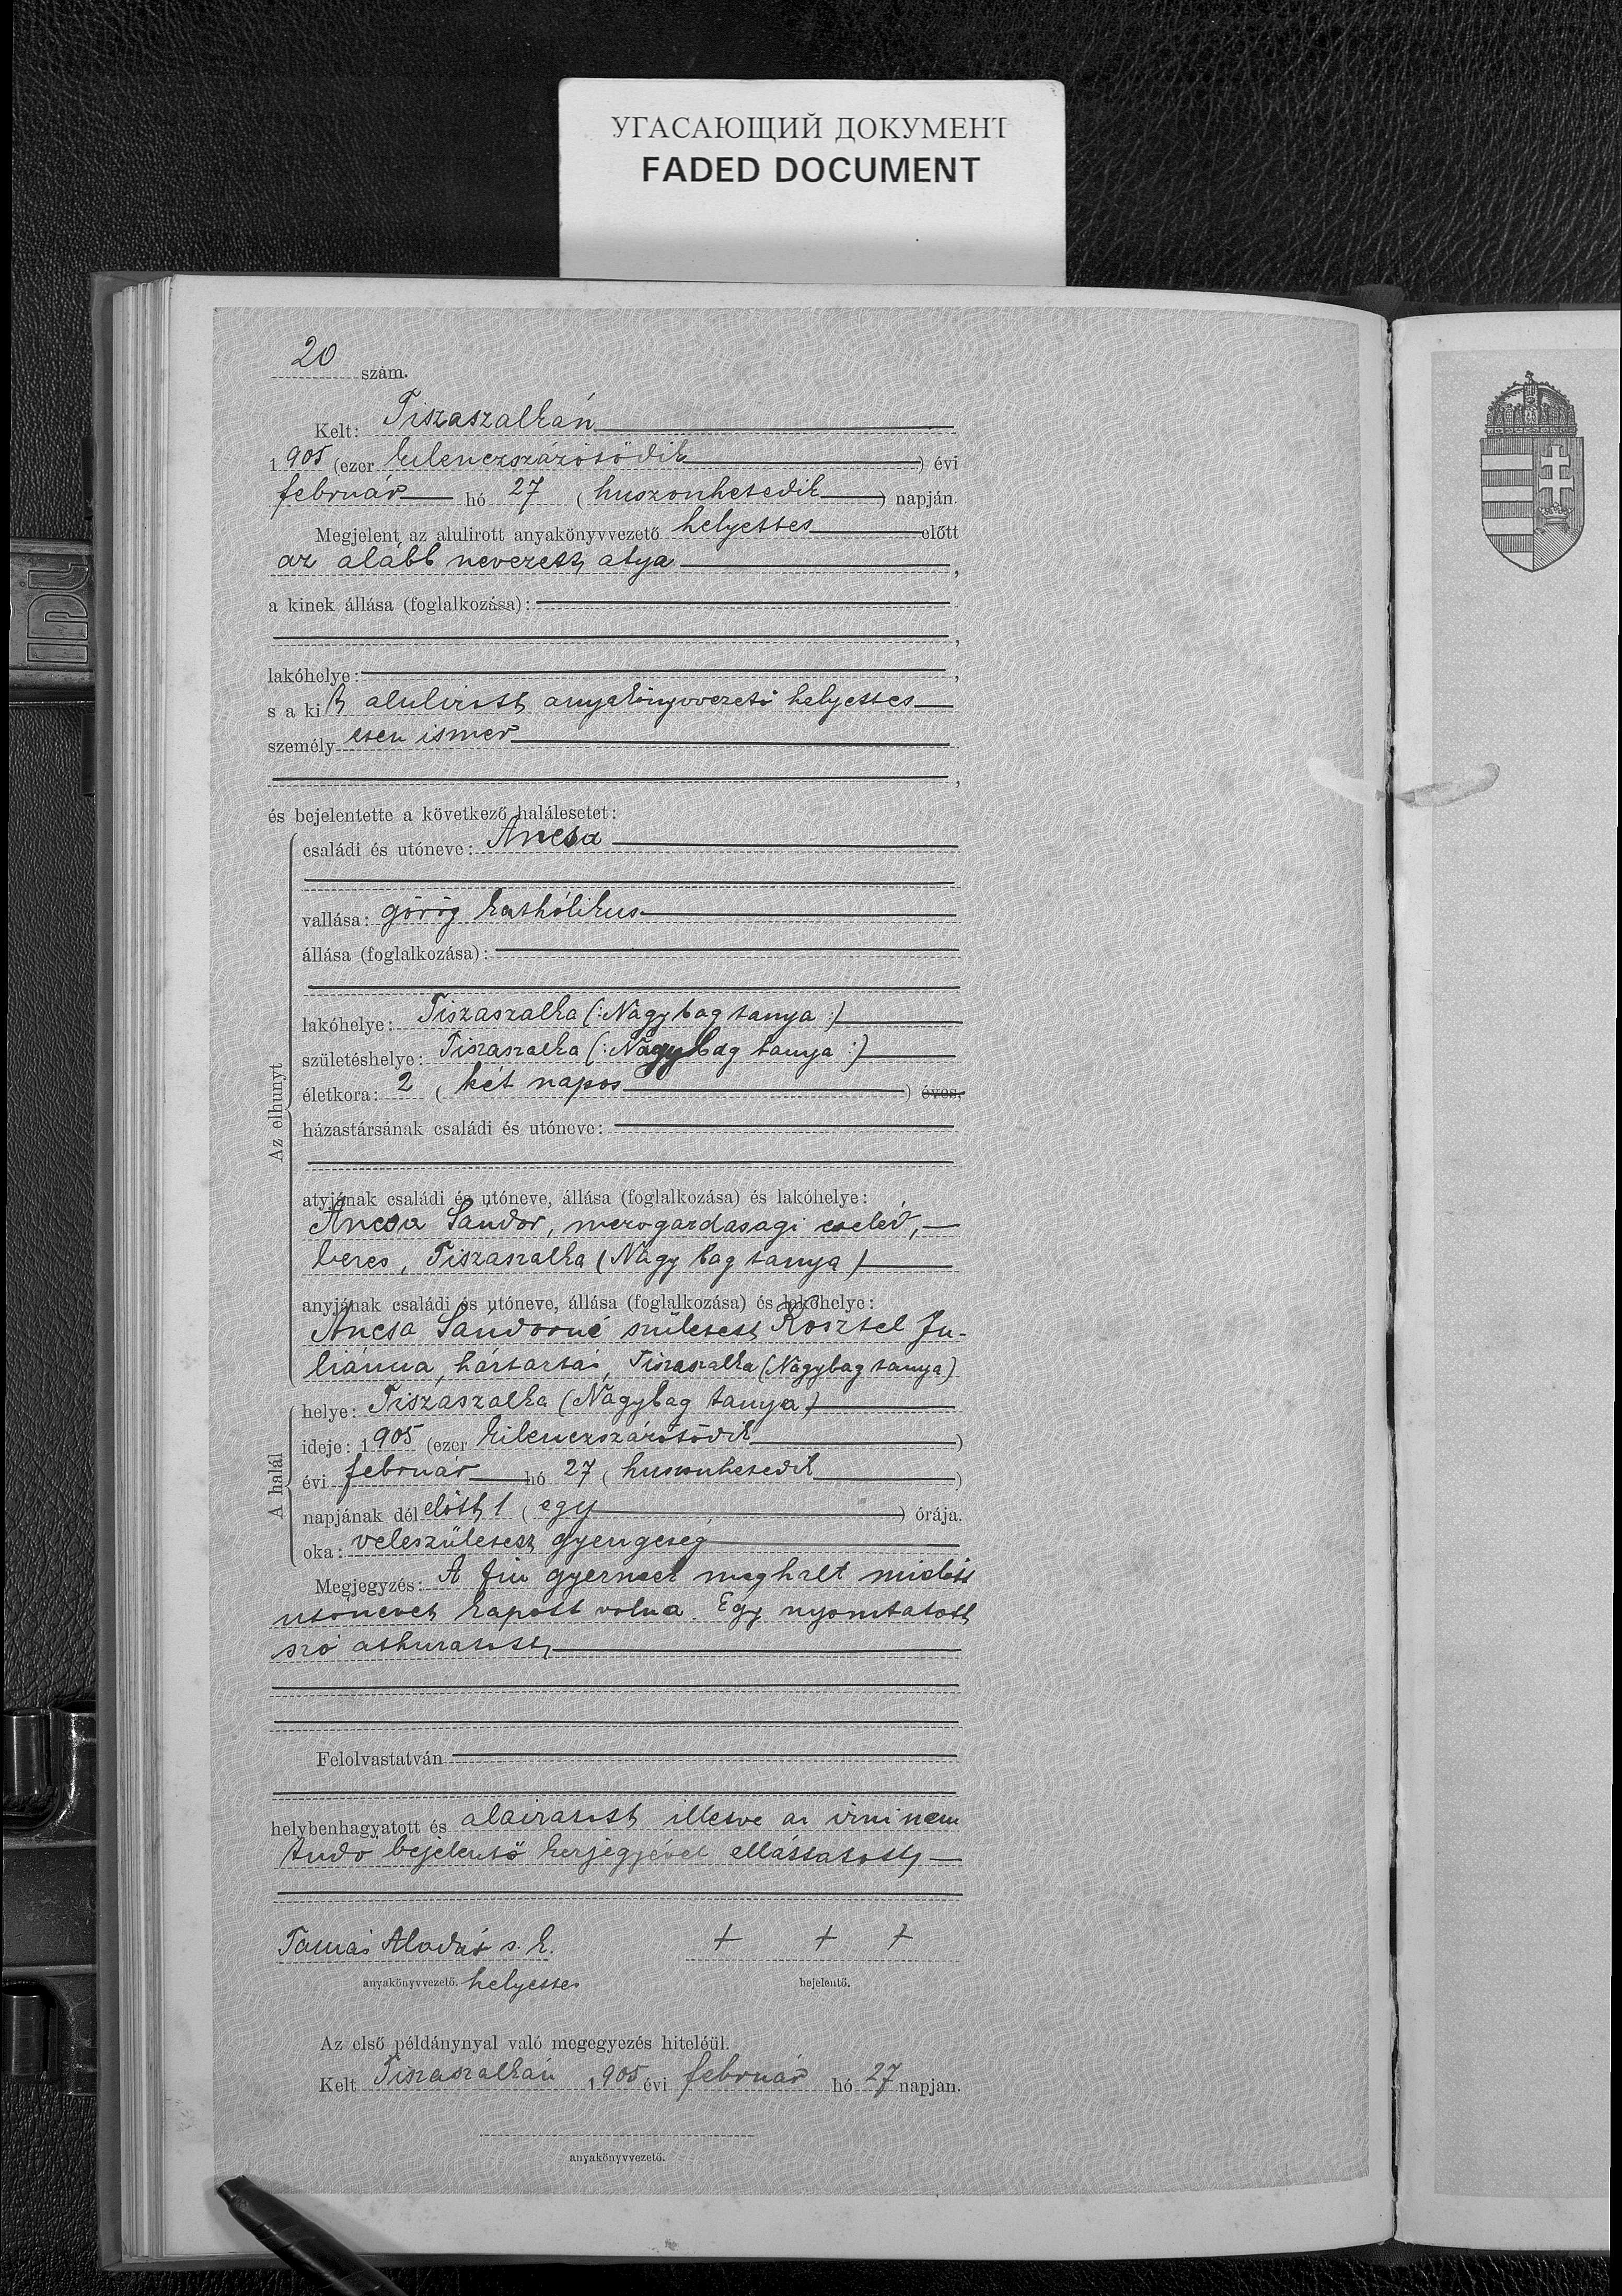 УГАСАЮЩИЙ ДОКУМЕНТ
FADED DOCUMENT
20 szám.
Kelt: Tiszaszalkán
1905 (ezer kilenczszázötödik) évi
február hó 27 (huszonhetedik) napján.
Megjelent az alulirott anyakönyvvezető helyettes előtt
az alább nevezett atya,
a kinek állása (foglalkozása):
,
lakóhelye: ,
s a kit alulirott anyakönyvvezető helyettes
személyesen ismer
,
és bejelentette a következő halálesetet:
Az elhunyt
családi és utóneve: Ancsa
vallása: görög kathólikus
állása (foglalkozása):
lakóhelye: Tiszaszalka (: Nagybag tanya :)
születéshelye: Tiszaszalka (: Nagybag tanya :)
életkora: 2 (két napos) éves,
házastársának családi és utóneve:
atyjának családi és utóneve, állása (foglalkozása) és lakóhelye:
Ancsa Sándor, mezogazdasagi cseléd,
beres, Tiszaszalka (Nagy bag tanya)
anyjának családi és utóneve, állása (foglalkozása) és lakóhelye:
Ancsa Sándorné született Kosztel Ju-
liánna, háztartás, Tiszaszalka (Nagybag tanya)
A halál
helye: Tiszaszalka (Nagybag tanya)
ideje: 1905 (ezer kilenczszázötödik)
évi február hó 27 (huszonhetedik)
napjának délelőtt 1 (egy) órája.
oka: veleszületett gyengeség
Megjegyzés: A fiu gyermek meghalt mielőtt
utónevet kapott volna. Egy nyomtatott
szó áthuzatott
Felolvastatván
helybenhagyatott és aláiratott illetve az irni nem
tudó bejelentő kézjegyével elláttatott
Tamás Aladár s. k. + + +
anyakönyvvezető. helyettes bejelentő.
Az első példánynyal való megegyezés hiteléül.
Kelt Tiszaszalkán 1905 évi február hó 27 napjan.
anyakönyvvezető.